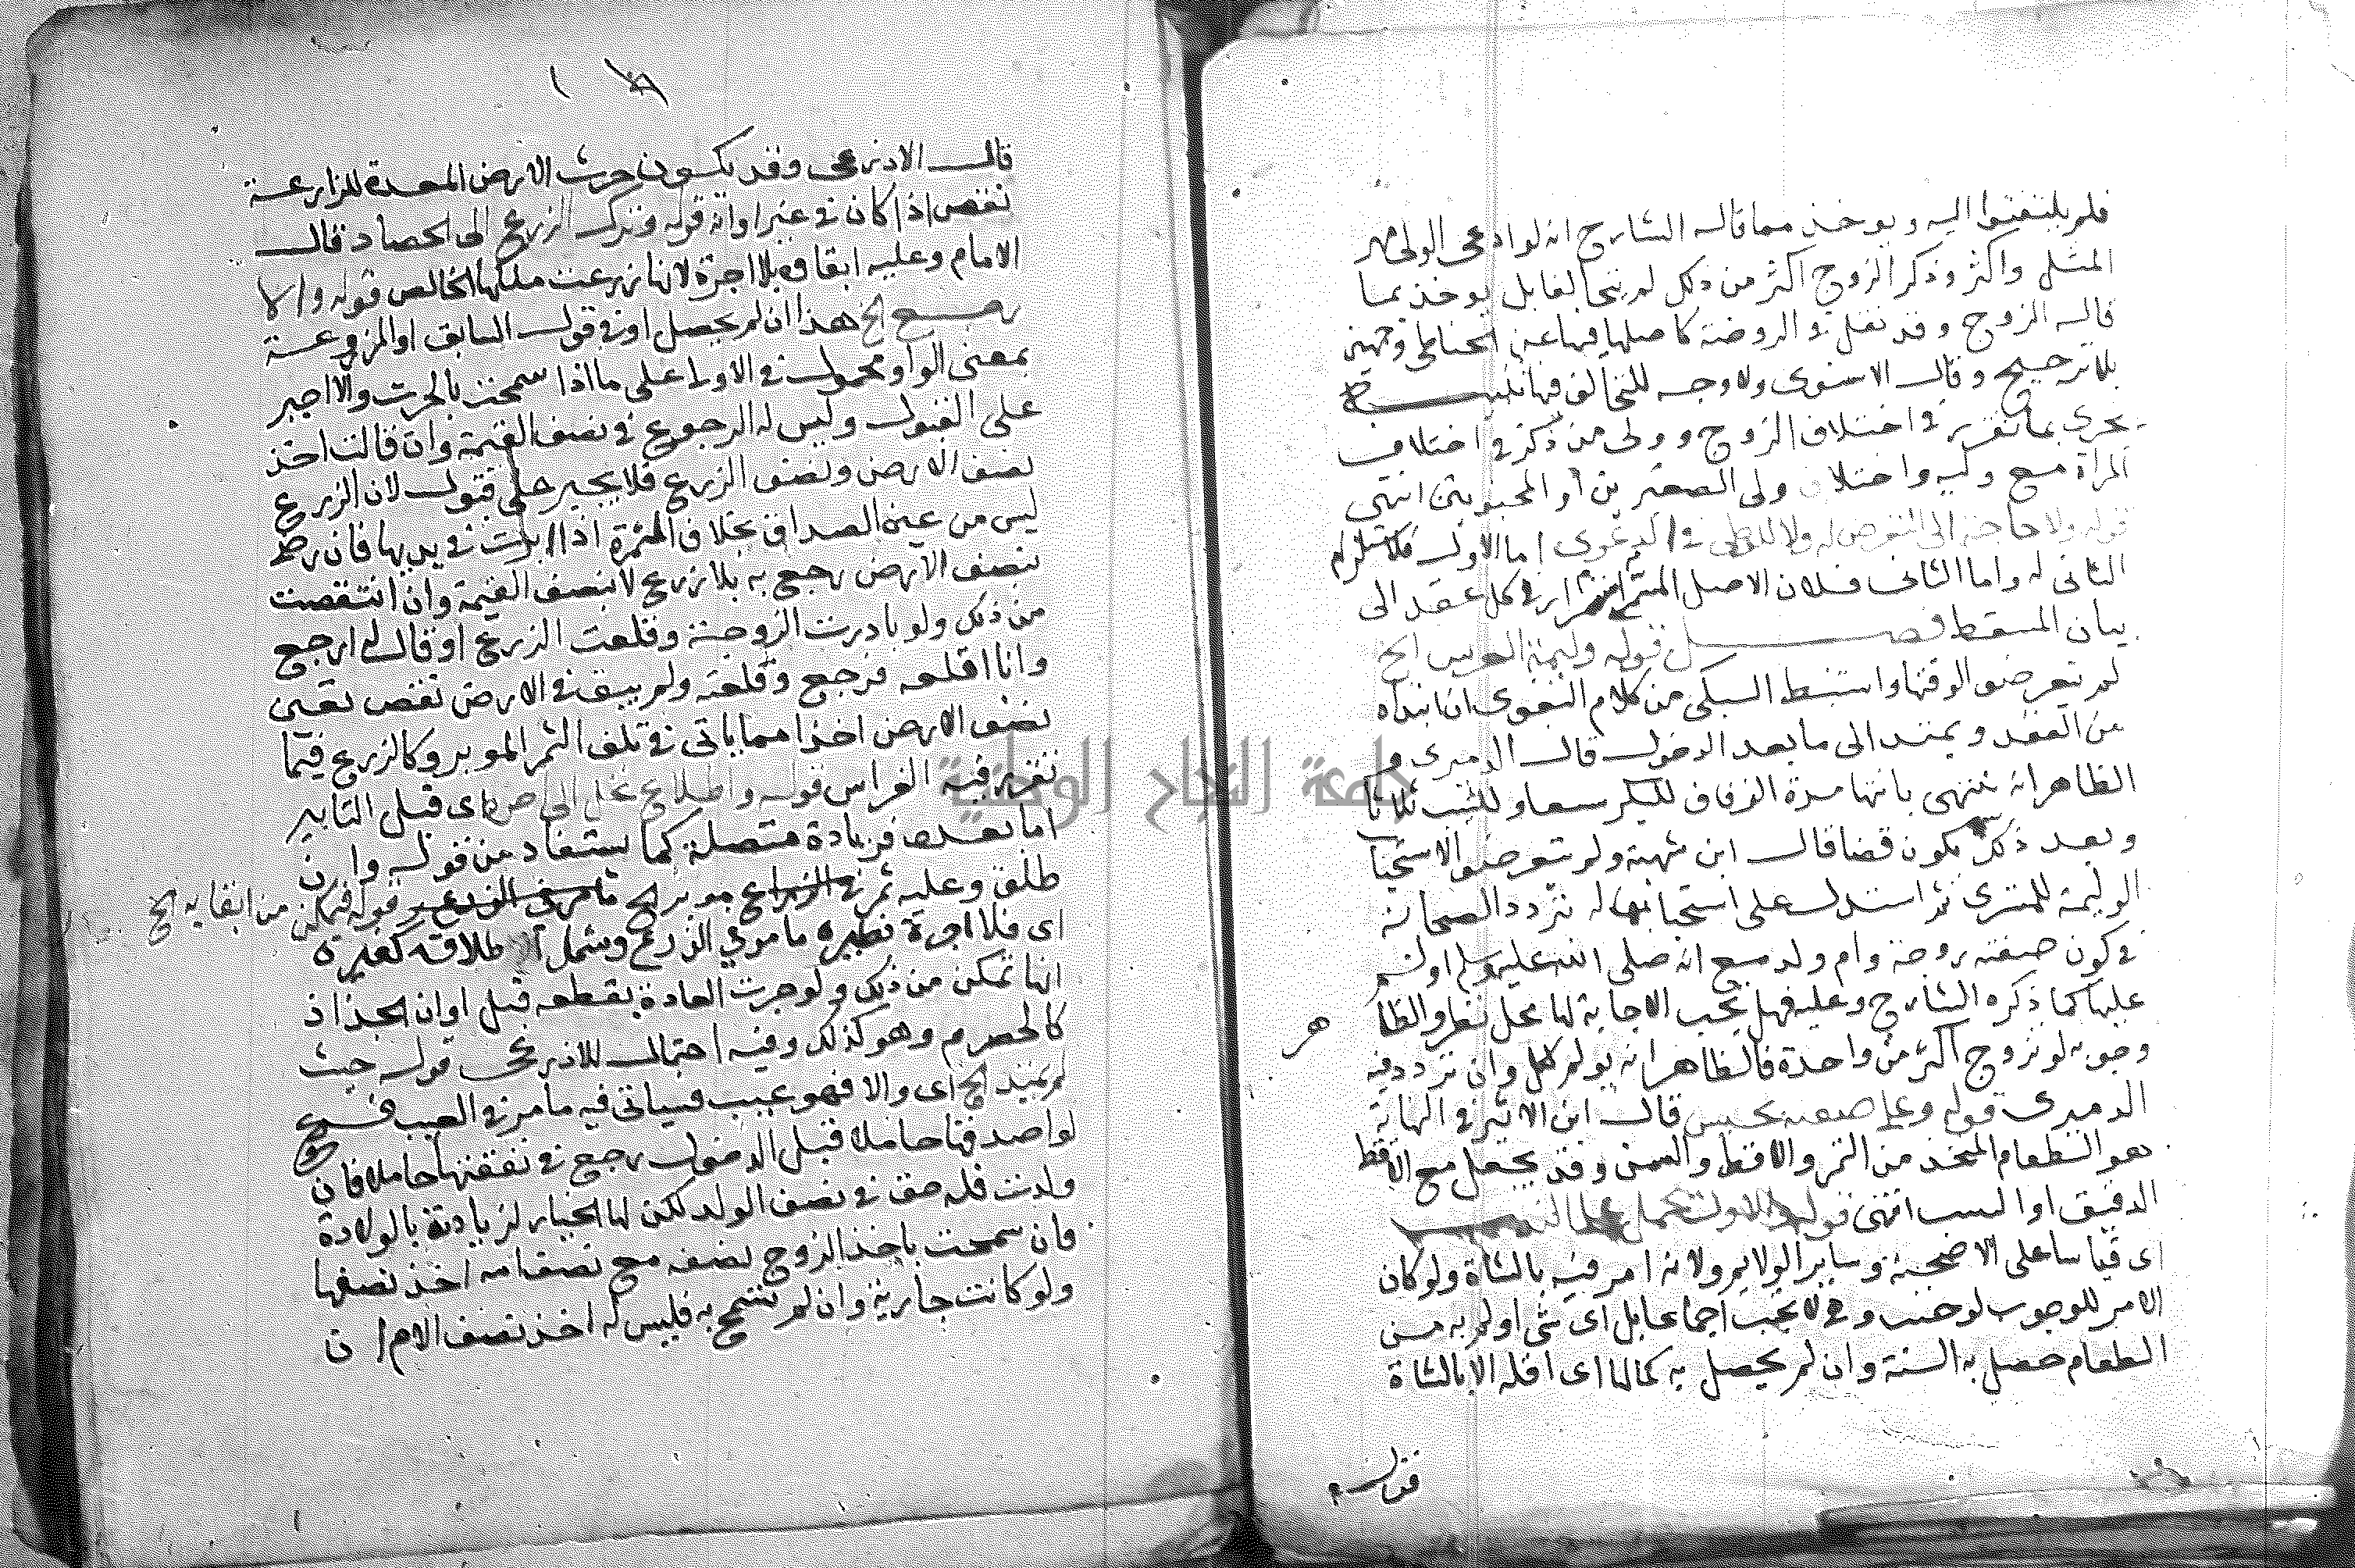 فلم يلتفتوا اليه ويوخذ مما قاله الشارح انه لو ادعى الولي مهر
المثل واكثر وذكر الزوج اكثر من ذلك لم يتحالفا بل يوخذ بما
قاله الزوج وقد نقل في الروضة كاصلها فيها عن الحناطي وجهين
بلا ترجيح وقال الاسنوي ولا وجه للتحالف فيها
يجري بما تقرر في اختلاف الزوج وولي من ذكر في اختلاف
المراة مع وليه واختلاف ولي الصغيرين أو المجنونين انتهى
قوله ولا حاجة الى التعرض له ولا للوطي في الدعوى اما الاول فلاستلزام
الثاني له واما الثاني فلان الاصل استمرار كل عقد الى
بيان المسقط فصل قوله وليمة العرس الخ
لم يتعرضوا لوقتها واستنبط السبكي من كلام البغوي ان ابتداه
من العقد ويمتد الى ما بعد الدخول قال الدميري و
الظاهر انه تنتهي بانتها مدة الزفاف للبكر سبعا وللثيب ثلاثا
وبعد ذلك يكون قضا قال ابن شهبة ولم يتعرضوا لاستحباب
الوليمة للمتسري ثم استدل على استحبابها له بتردد الصحابة
في كون صفية زوجة وام ولد مع انه صلى الله عليه وسلم اولم
عليها كما ذكره الشارح وعليه فهل تجب الاجابة لها محل نظر والظا
هر
وجوبه لو تزوج اكثر من واحدة فالظاهر انه يولم لكل وان تردد فيه
الدميري قوله وعلى صفية بحيس قال ابن الاثير في النهاية
هو الطعام المتخذ من التمر والاقط والسمن وقد يجعل مع الاقط
الدقيق او انتهى قوله والاول
اى قياسا على الاضحية وساير الولايم ولانه امر فيه بالشاة ولو كان
الامر للوجوب لوجبت وهي لا تجب اجماعا بل اى شي اولم به من
الطعام حصل به السنة وان لم يحصل به كمالها اى اقله الا بالشاة
قوله
قال الاذرعي وقد يكون حرث الارض المعدة للزراعة
نقص اذا كان في غير اوانه قوله وترك الزرع الى الحصاد قال
الامام وعليه ابقاوه بلا اجرة لانها زرعت ملكها الخالص قوله والا
رجع الخ هذا ان لم يحصل او في قول السابق او المزروعة
بمعنى الواو محمول في الاول على ما اذا سمحت بالحرث والا اجبر
على القبول وليس له الرجوع في نصف القيمة وان قالت اخذ
نصف الارض ونصف الزرع فلا يجبر على قبول لان الزرع
ليس من عين الصداق بخلاف الثمرة اذا ابرت في يديها فان رضي
بنصف الارض رجع به بلا زرع لا بنصف القيمة وان انتقصت
من ذلك ولو بادرت الزوجة وقلعت الزرع او قال له ارجع
وانا اقلعه فرجع وقلعته ولم يبق في الارض نقص تعين
نصف الارض اخذا مما ياتي في تلف الثمر الموبر وكالزرع فيما
تقرر فيه الغراس قوله واطلاع نخل الى اى قبل التابير
اما بعده فزيادة متصلة كما يستفاد من قوله وان
طلق وعليه ثمر موبر الخ قوله فيمكن من ابقايه الخ
اى فلا اجرة نظيره ما مر في الزرع وشمل اطلاقه كغيره
انها تمكن من ذلك ولو جرت العادة بقطعه قبل اوان الجذاذ
كالحصرم وهو كذلك وفيه احتمال للاذرعي قوله حيث
لم يمتد الخ اى والا فهو عيب فسياتي فيه ما مر في العيب فروع
لو اصدقها حاملا قبل الدخول رجع في نصفها حاملا فان
ولدت فله حق في نصف الولد لكن لها الخيار لزيادة بالولادة
فان سمحت باخذ الزوج نصفه مع نصف امه اخذ نصفها
ولو كانت جارية وان لم تسمح به فليس له اخذ نصف الام ان